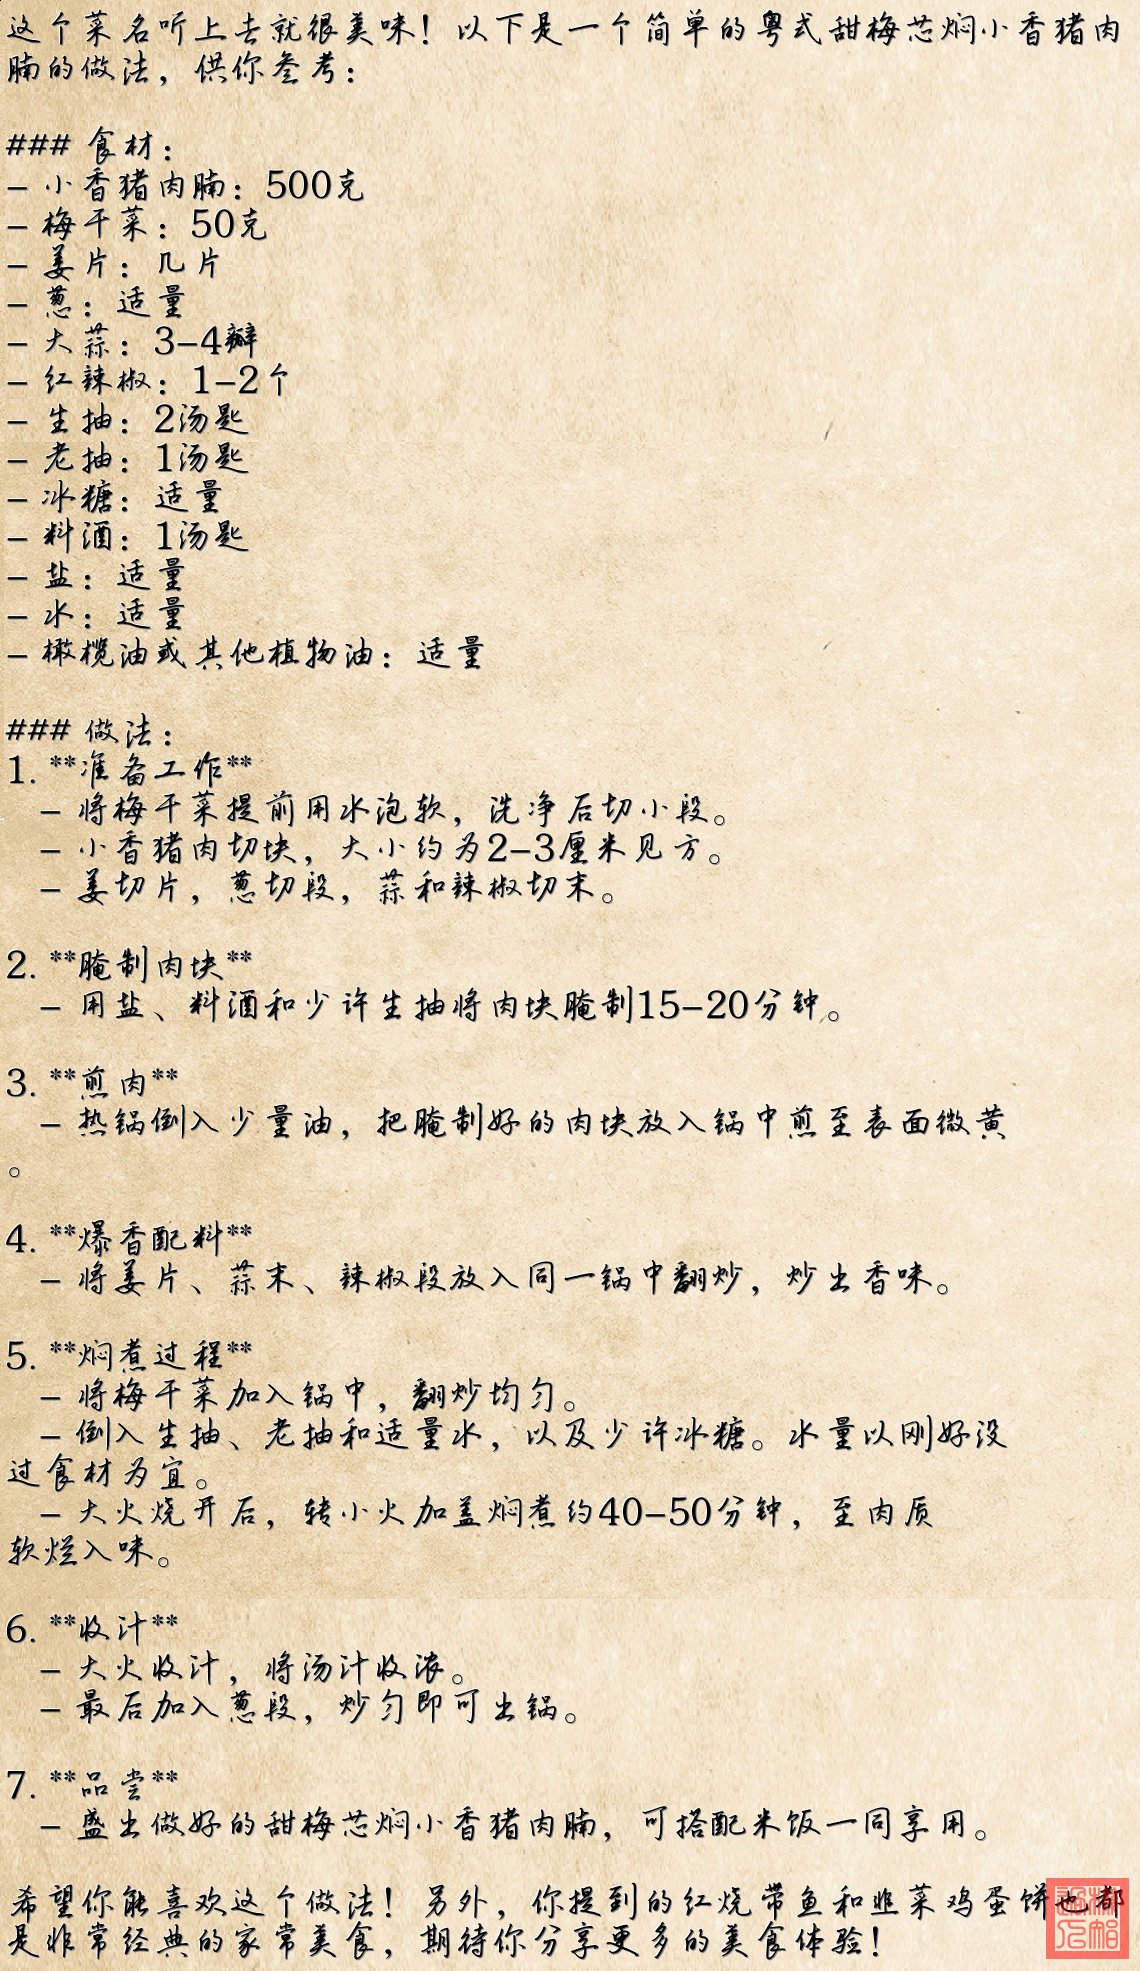 这个菜名听上去就很美味！以下是一个简单的粤式甜梅芯焖小香猪肉
腩的做法，供你参考：
### 食材：
- 小香猪肉腩：500克
- 梅干菜：50克
- 姜片：几片
- 葱：适量
- 大蒜：3-4瓣
- 红辣椒：1-2个
- 生抽：2汤匙
- 老抽：1汤匙
- 冰糖：适量
- 料酒：1汤匙
- 盐：适量
- 水：适量
- 橄榄油或其他植物油：适量
### 做法：
1. **准备工作**
- 将梅干菜提前用水泡软，洗净后切小段。
- 小香猪肉切块，大小约为2-3厘米见方。
- 姜切片，葱切段，蒜和辣椒切末。
2. **腌制肉块**
- 用盐、料酒和少许生抽将肉块腌制15-20分钟。
3. **煎肉**
- 热锅倒入少量油，把腌制好的肉块放入锅中煎至表面微黄
。
4. **爆香配料**
- 将姜片、蒜末、辣椒段放入同一锅中翻炒，炒出香味。
5. **焖煮过程**
- 将梅干菜加入锅中，翻炒均匀。
- 倒入生抽、老抽和适量水，以及少许冰糖。水量以刚好没
过食材为宜。
- 大火烧开后，转小火加盖焖煮约40-50分钟，至肉质
软烂入味。
6. **收汁**
- 大火收汁，将汤汁收浓。
- 最后加入葱段，炒匀即可出锅。
7. **品尝**
- 盛出做好的甜梅芯焖小香猪肉腩，可搭配米饭一同享用。
希望你能喜欢这个做法！另外，你提到的红烧带鱼和韭菜鸡蛋饼也都
是非常经典的家常美食，期待你分享更多的美食体验！